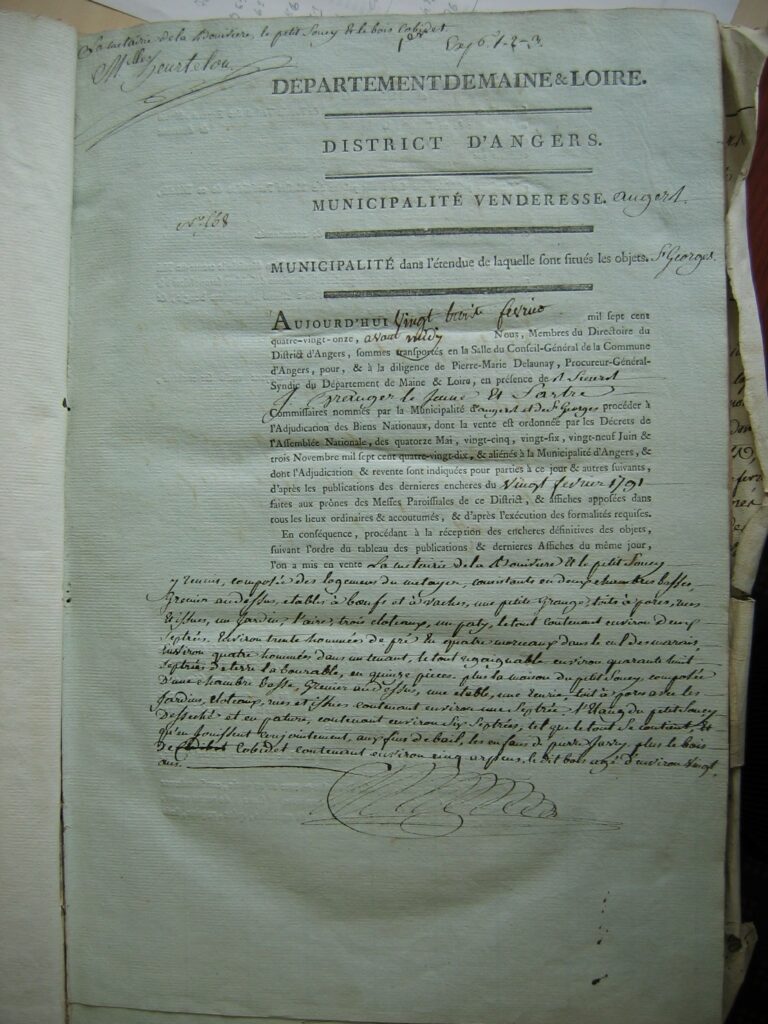 La metairie de la Bouvrie, le petit Soucy & le bois Cobidet
1er Exp. 6. 1-2-3
Mlle Hourtelou
DÉPARTEMENT DE MAINE & LOIRE.
DISTRICT D'ANGERS.
MUNICIPALITÉ VENDERESSE. angers.
No. 168
MUNICIPALITÉ dans l'étendue de laquelle sont situés les objets. St Georges.
AUJOURD'HUI Vingt trois fevrier mil sept cent
quatre-vingt-onze, avant midy Nous, Membres du Directoire du
District d'Angers, sommes transportés en la Salle du Conseil-Général de la Commune
d'Angers, pour, & à la diligence de Pierre-Marie Delaunay, Procureur-Général-
Syndic du Département de Maine & Loire, en présence de
le Jeune Et
Commissaires nommés par la Municipalité d'angers et de St Georges procéder à
l'Adjudication des Biens Nationaux, dont la vente est ordonnée par les Décrets de
l'Assemblée Nationale, des quatorze Mai, vingt-cinq, vingt-six, vingt-neuf Juin &
trois Novembre mil sept cent quatre-vingt-dix, & aliénés à la Municipalité d'Angers, &
dont l'Adjudication & revente sont indiquées pour parties à ce jour & autres suivants,
d'après les publications des dernieres encheres du Vingt fevrier 1791
faites aux prônes des Messes Paroissiales de ce District, & affiches apposées dans
tous les lieux ordinaires & accoutumés, & d'après l'exécution des formalités requises.
En conséquence, procédant à la réception des encheres définitives des objets,
suivant l'ordre du tableau des publications & dernieres Affiches du même jour,
l'on a mis en vente La metairie de la Bouvrie & le petit Soucy
y reunis, composée des logemens du metayer, consistants en deux chambres basses,
Grenier au dessus, etables à bœufs et à vaches, une petite Grange, toits à porcs, rues
et issues, un Jardin, l'aire, trois cloteaux, un paty, le tout contenant environ deux
septrées. Environ trente hommées de pré En quatre morceaux dans le cul des marais,
Environ quatre hommées dans un tenant, le tout environ quarante huit
septrées de terre labourable, en quinze pieces. plus la maison du petit Soucy, composée
D'une chambre basse, Grenier au dessus, une etable, une Ecurie, toit à porcs avec les
Jardins, cloteaux, rues et issues contenant environ une septrée. l'Etang du petit Soucy
Desseché et en pature, contenant environ six septrées, tel que le tout se contient, Et
qu'en Jouissent conjointement, aux fins de bail, les enfans de pierre Jarry, plus le bois
de Cobidet contenant environ cinq arpens, le dit bois agé d'environ vingt
ans.